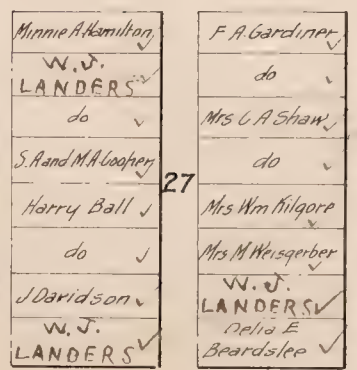 Minnie A Hamilton
W. J.
LANDERS
do
S. A and M. A. Cooper
Harry Ball
do
J Davidson
W. J.
LANDERS
27
F A. Gardiner
do
Mrs C A Shaw
do
Mrs Wm Kilgore
Mrs M Weisgerber
W. J.
LANDERS
Delia E
Beardslee